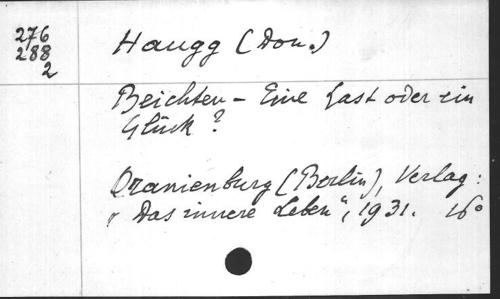 276
288
2
Haugg (Don.)
Beichten - Eine Last oder ein
Glück?
Oranienburg (Berlin), Verlag:
„Das innere Leben", 1931. 16°